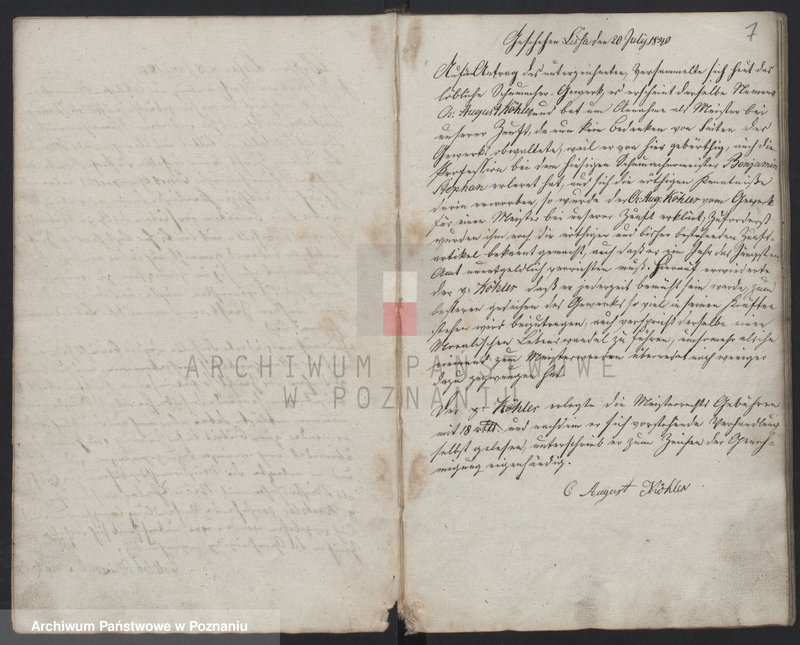 7
Geschehen Lissa den 20 July 1840
Auf den Antrag des unterzeichneten, versammelte sich heut das
löbliche Schumacher-Gewerk, es erscheint derselbe Namens
Ch: August Köhler und bat um Annahme als Meister bei
unserer Zunft, da nun kein Bedenken von Seiten des
Gewerks obwaltete, weil er von hier gebürthig, auch die
Profession bei dem hiesigen Schumachermeister Benjamin
Stephan erlernt hat, und sich die nöthigen Kenntniße
darin erworben, so wurde der Ch. Aug. Köhler vom Gewerk
für einen Meister bei unserer Zunft erklärt, Zuförderst
wurden ihm noch die nöthigen und bisher bestehenden Zunft-
artikel bekannt gemacht, auch daß er ein Jahr das Jüngsten
Amt unentgeldlich verrichten muß. Hierauf erwiederte
der p: Köhler daß er jederzeit bemüht sein werde, zum
besseren gedeihen des Gewerks so viel in seinen Kräften
stehen wird beizutragen, auch verspricht derselbe einen
Moralischen Lebenswandel zu führen,
niemand zum Meisterwerden überredet noch weniger
dazu gezwungen hat.
Der p: Köhler erlegte die Meisterrechts Gebühren
mit 18 und nachdem er sich vorstehende Verhandlung
selbst gelesen, unterschrieb er zum Zeichen der Geneh-
migung eigenhändig.
C August Köhler
ARCHIWUM PAŃSTWOWE
W POZNANIU
Archiwum Państwowe w Poznaniu